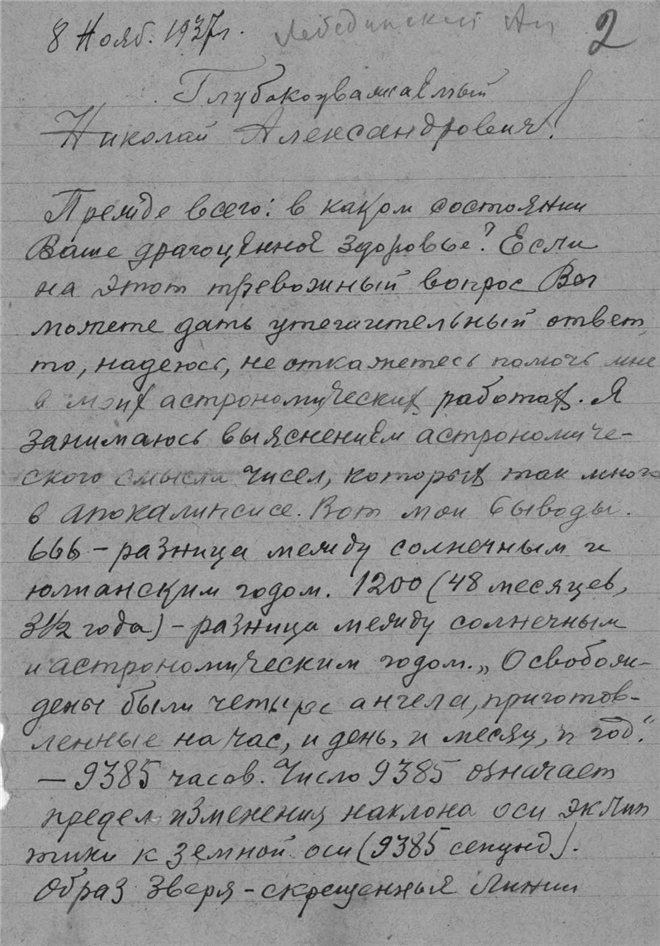 8 Нояб. 1937г. Лебединский Ан 2
Глубокоуважаемый
Николай Александрович!
Прежде всего: в каком состоянии
Ваше драгоценное здоровье? Если
на этот тревожный вопрос Вы
можете дать утешительный ответ,
то, надеюсь, не откажетесь помочь мне
в моих астрономических работах. Я
занимаюсь выяснением астрономиче-
ского смысла чисел, которых так много
в апокалипсисе. Вот мои выводы.
666 – разница между солнечным и
юлианским годом. 1200 (48 месяцев,
3 1/2 года) – разница между солнечным
и астрономическим годом. „Освобож-
дены были четыре ангела, приготов-
ленные на час, и день, и месяц, и год“.
— 9385 часов. Число 9385 означает
предел изменения наклона оси эклип
тики к земной оси (9385 секунд).
Образ Зверя – скрещенныя линии